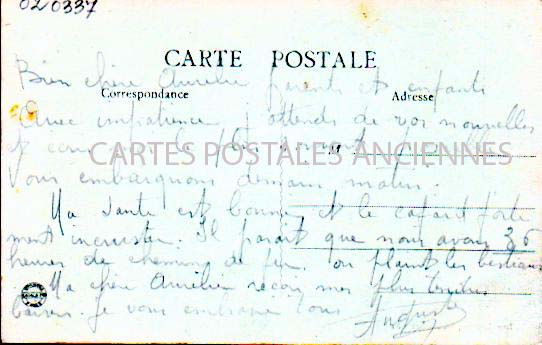 020337
CARTE POSTALE
Bien chère Aurélie parents et enfants
Correspondance Adresse
Avec impatience j'attends de vos nouvelles
et
M
CARTES POSTALES ANCIENNES
Vous embarquons demain matin.
Ma santé est bonne et le cafard forte
ment incruster. Il parait que nous avons 36
heures de chemin de fer, ou plaint les bestiaux
Ma chère Aurélie reçois mes plus tendres
baisers. Je vous embrasse tous
Auguste